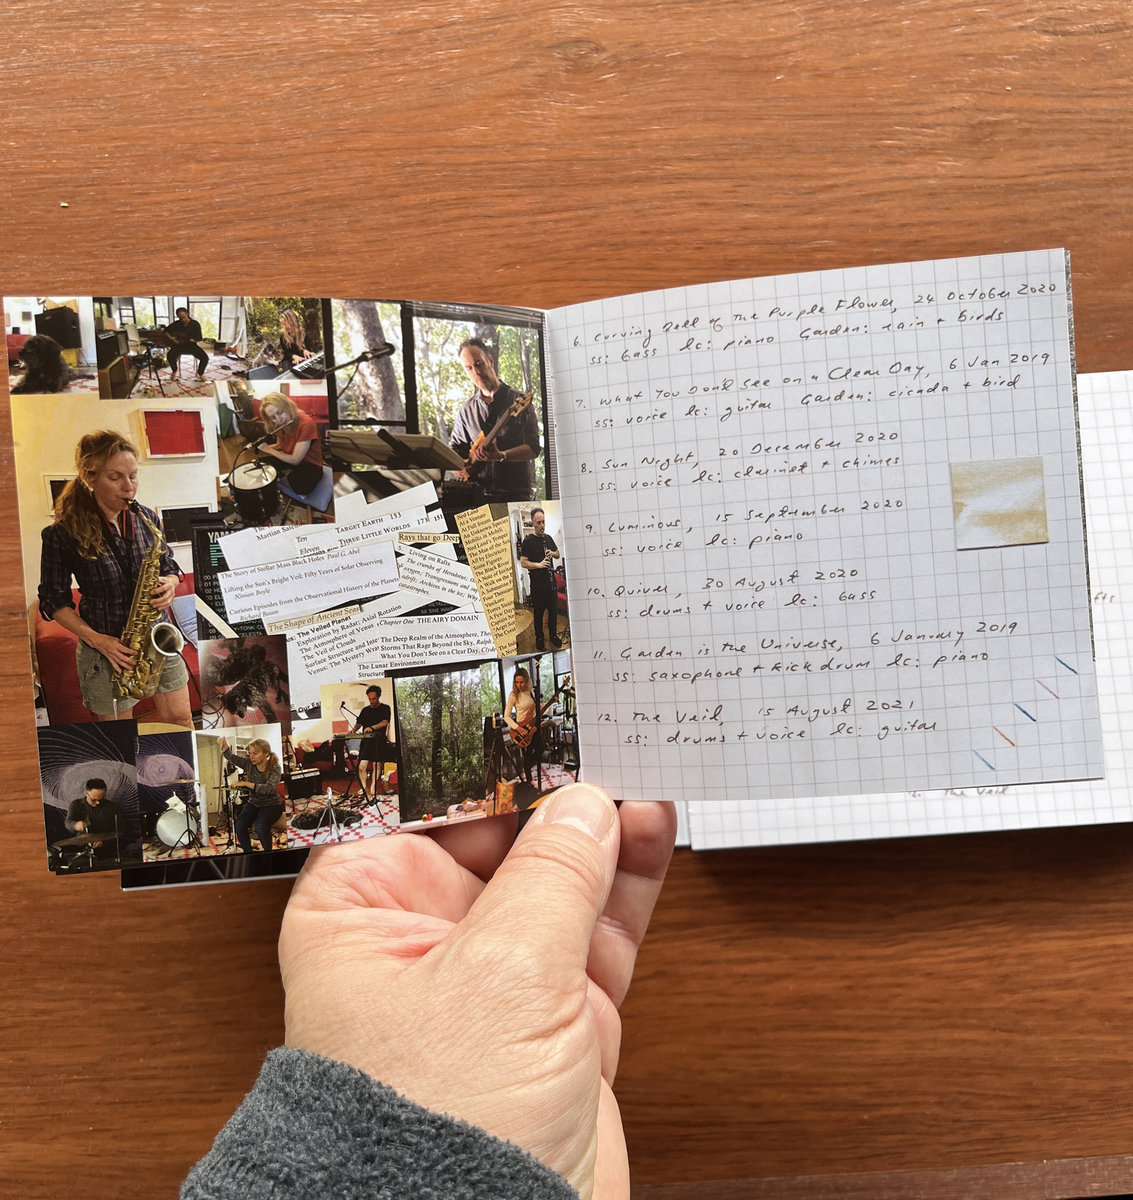 TARGET EARTH 153
Ten
THREE LITTLE WORLDS 173
151
Eleven
Rays that go Deep
The Story of Stellar Mass Black Holes Paul G. Abel
Lifting the Sun's Bright Veil: Fifty Years of Solar Observing
Ninian Boyle
Curious Episodes from the Observational History of the Planets
Richard Baum
The Shape of Ancient Seas
Living on Rafts
The Veiled Planet
Exploration by Radar; Axial Rotation
The Atmosphere of Venus
The Veil of Clouds
Surface Structure and
Venus: The Mystery
Chapter One THE AIRY DOMAIN
The Deep Realm of the Atmosphere,
Storms That Rage Beyond the Sky, Ralph
What You Don't See on a Clear Day,
The Lunar Environment
Structure
6. Curving Bell of the Purple Flower, 24 October 2020
ss: bass lc: piano Garden: rain + birds
7. What You Don't See on a Clear Day, 6 Jan 2019
ss: voice lc: guitar Garden: cicada + bird
8. Sun Night, 20 December 2020
ss: voice lc: clarinet + chimes
9. Luminous, 15 September 2020
ss: voice lc: piano
10. Quiver, 30 August 2020
ss: drums + voice lc: bass
11. Garden is the Universe, 6 January 2019
ss: saxophone + kick drum lc: piano
12. The Veil, 15 August 2021
ss: drums + voice lc: guitar
The Veil